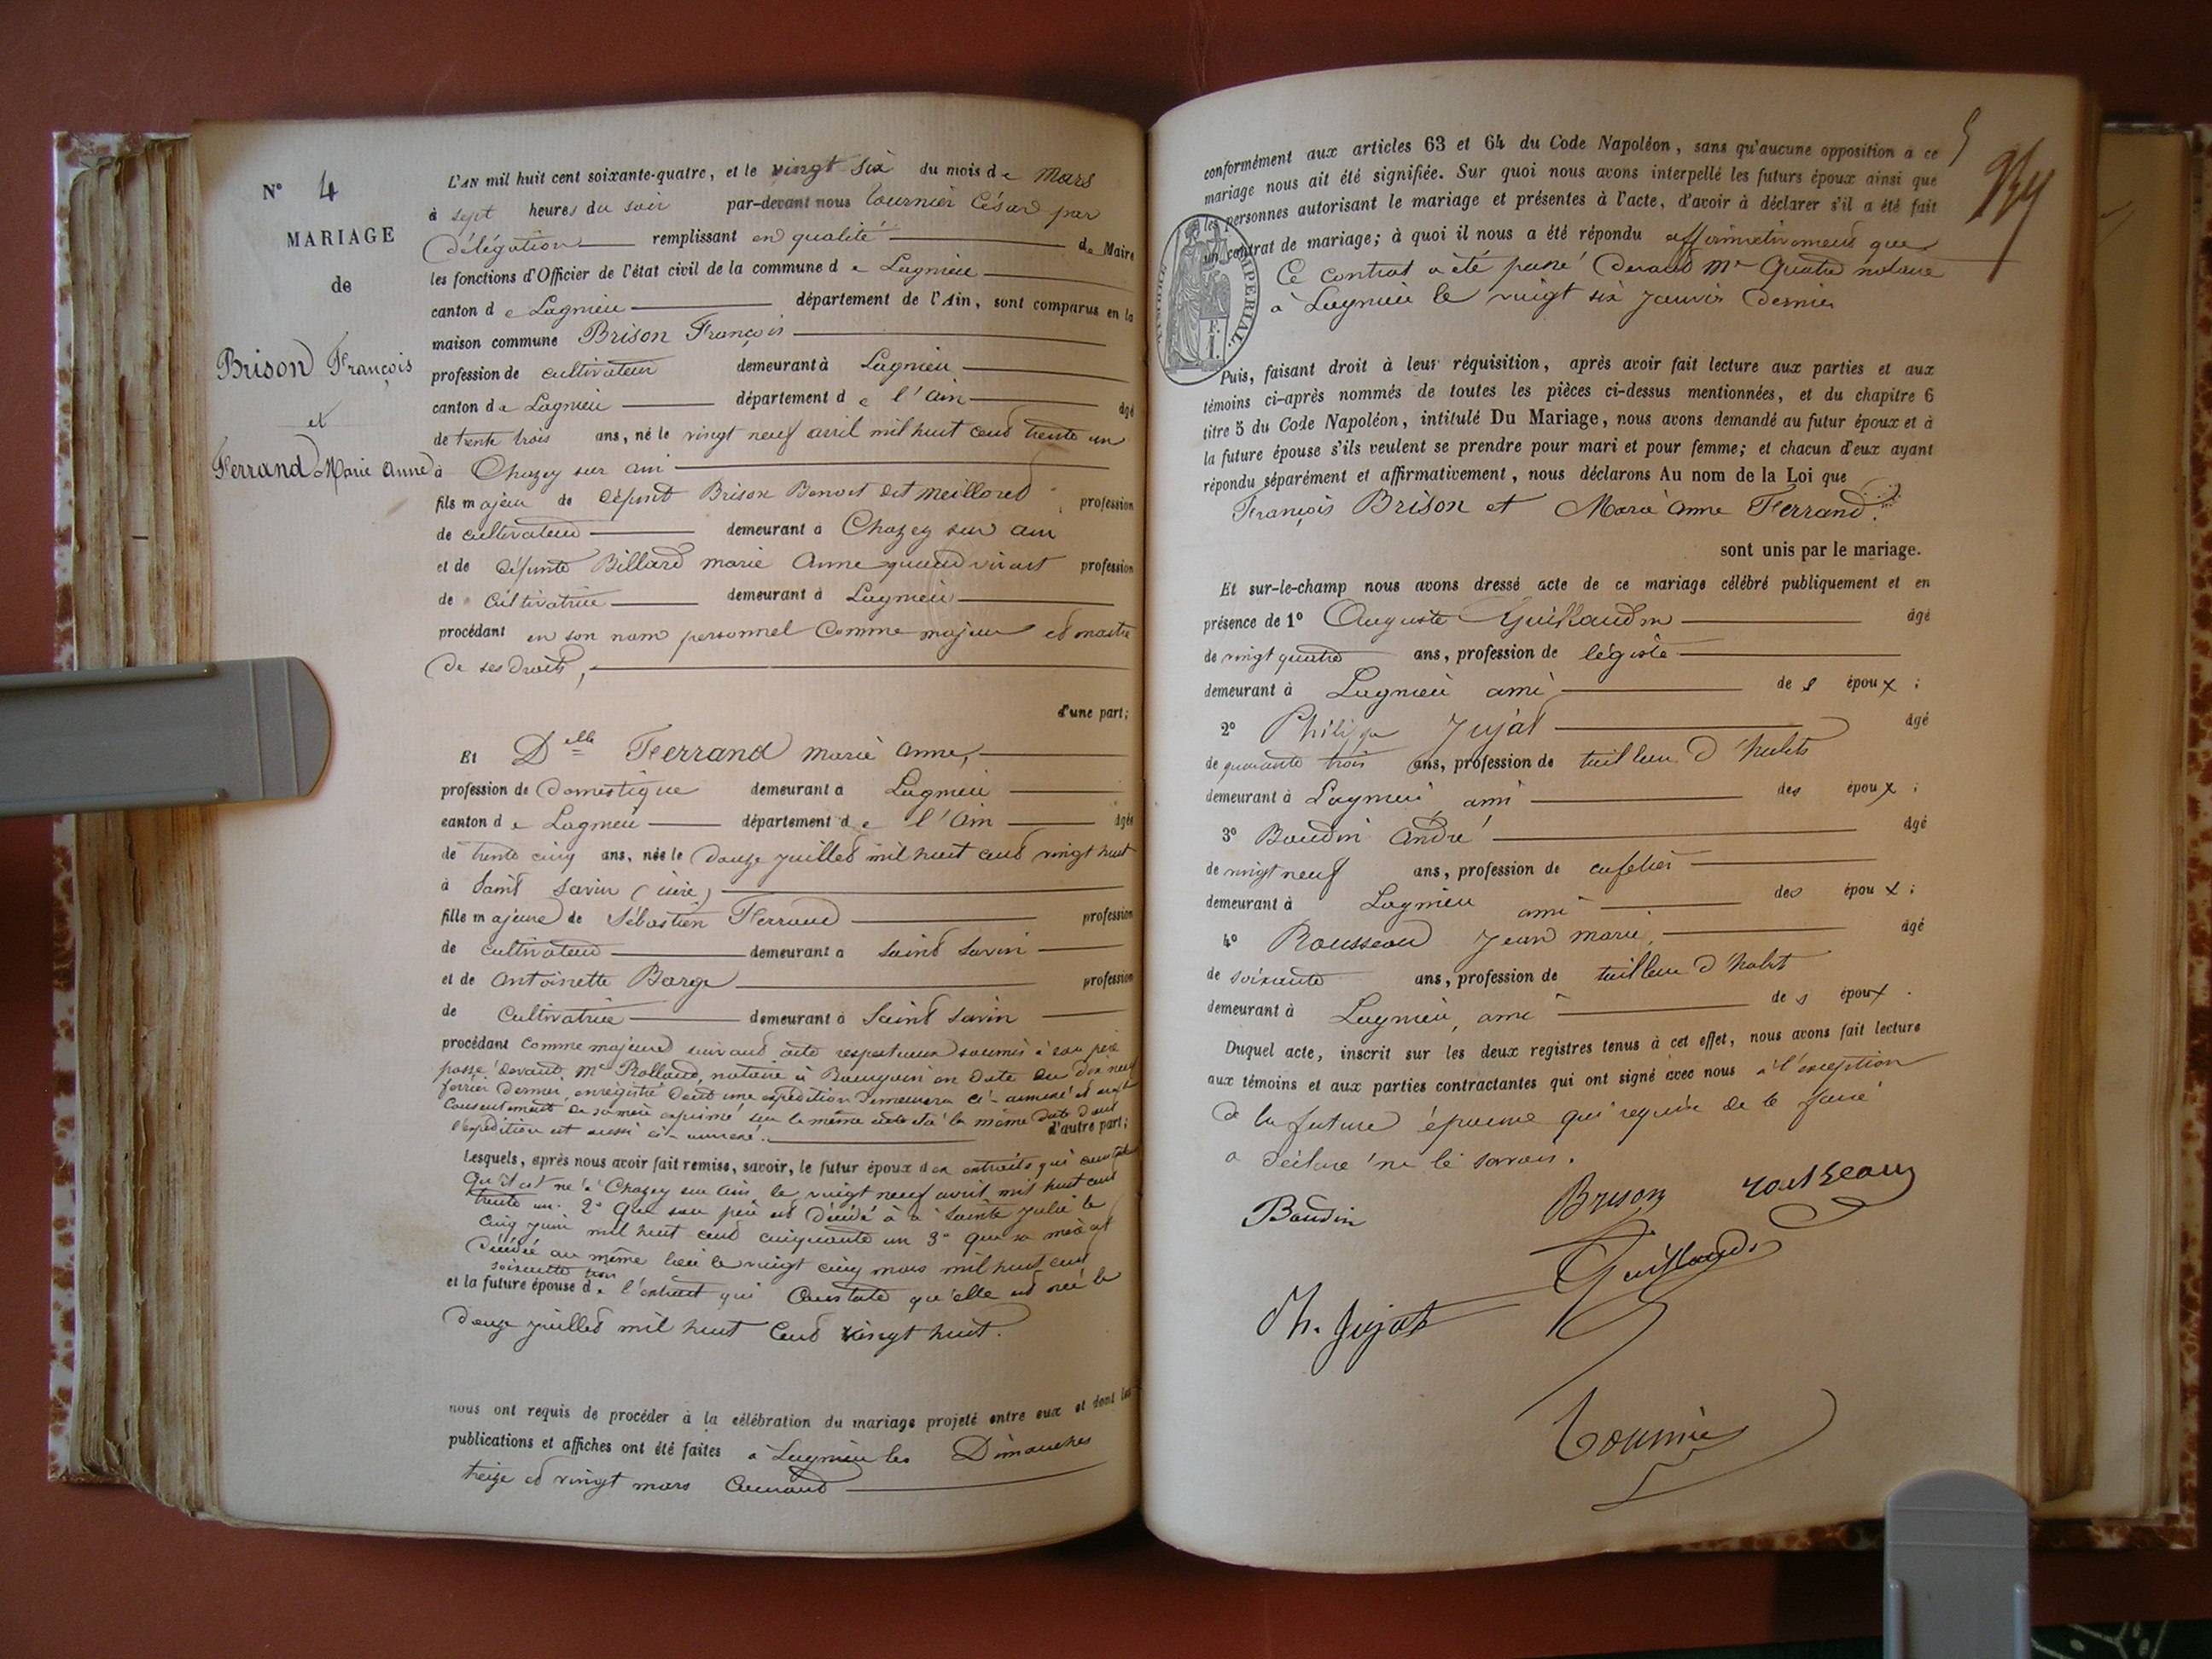 N° 4
MARIAGE
de
Brison François
et
Ferrand Marie Anne
L'AN mil huit cent soixante-quatre, et le vingt six du mois de Mars
à sept heures du soir par-devant nous Tournier César par
Délégation remplissant en qualité de Maire
les fonctions d'Officier de l'état civil de la commune de Lagnieu
canton de Lagnieu département de l'Ain, sont comparus en la
maison commune Brison François
profession de cultivateur demeurant à Lagnieu
canton de Lagnieu département de l'Ain âgé
de trente trois ans, né le vingt neuf avril mil huit cent trente un
à Chazey sur ain
fils majeur de défunt Brison Benoit dit Meilloret profession
de cultivateur demeurant à Chazey sur ain
et de défunte Billard marie Anne quand vivait profession
de cultivatrice demeurant à Lagnieu
procédant en son nom personnel comme majeur et maitre
de ses droits,
d'une part;
Et Delle Ferrand marie anne,
profession de Domestique demeurant à Lagnieu
canton de Lagnieu département de l'Ain âgée
de trente cinq ans, née le Douze juillet mil huit cent vingt huit
à Saint Savin (isère)
fille majeure de Sébastien Ferrand profession
de cultivateur demeurant à Saint Savin
et de Antoinette Barge profession
de Cultivatrice demeurant à Saint Savin
procédant comme majeure suivant acte respectueux soumis à son père
passé devant Me Rolland, notaire à Bourgoin en Date du dix neuf
février Dernier, enregistré dont une expédition demeurera ci-annexé et
consentement de sa mère exprimé sur le même acte à la même date dont
l'expédition est aussi ci-annexe. d'autre part;
Lesquels, après nous avoir fait remise, savoir, le futur époux des extraits qui constate
Qu'il est né à Chazey sur Ain le vingt neuf avril mil huit cent
trente un. 2° Que son père est Décédé à Sainte Julie le
cinq juin mil huit cent cinquante un 3° que sa mère est
Décédée au même lieu le vingt cinq mars mil huit cent
soixante trois
et la future épouse de l'extrait qui Constate qu'elle est née le
Douze juillet mil huit Cent vingt huit.
nous ont requis de procéder à la célébration du mariage projeté entre eux et dont les
publications et affiches ont été faites à Lagnieu les Dimanches
treize et vingt mars Courant
conformément aux articles 63 et 64 du Code Napoléon, sans qu'aucune opposition à ce
mariage nous ait été signifiée. Sur quoi nous avons interpellé les futurs époux ainsi que
les personnes autorisant le mariage et présentes à l'acte, d'avoir à déclarer s'il a été fait
un contrat de mariage; à quoi il nous a été répondu affirmativement que
Ce contrat a été passé Devant Me Quatre notaire
à Lagnieu le vingt six janvier Dernier
TIMBRE IMPERIAL.
F.
I.
Puis, faisant droit à leur réquisition, après avoir fait lecture aux parties et aux
témoins ci-après nommés de toutes les pièces ci-dessus mentionnées, et du chapitre 6
titre 5 du Code Napoléon, intitulé Du Mariage, nous avons demandé au futur époux et à
la future épouse s'ils veulent se prendre pour mari et pour femme; et chacun d'eux ayant
répondu séparément et affirmativement, nous déclarons Au nom de la Loi que
François Brison et Marie Anne Ferrand.
sont unis par le mariage.
Et sur-le-champ nous avons dressé acte de ce mariage célébré publiquement et en
présence de 1° Auguste Guillaudin âgé
de vingt quatre ans, profession de légiste
demeurant à Lagnieu ami des époux;
2° Philippe Jujat âgé
de quarante trois ans, profession de tailleur d'habits
demeurant à Lagnieu ami des époux;
3° Baudin André âgé
de vingt neuf ans, profession de cafetier
demeurant à Lagnieu ami des époux;
4° Rousseau Jean marie, âgé
de soixante ans, profession de tailleur d'habit
demeurant à Lagnieu, ami des époux.
Duquel acte, inscrit sur les deux registres tenus à cet effet, nous avons fait lecture
aux témoins et aux parties contractantes qui ont signé avec nous à l'exception
de la future épouse qui requise de le faire
a déclaré ne le savoir.
Baudin Brison rousseau
Guillaudin
Ph. Jujat
Tournier